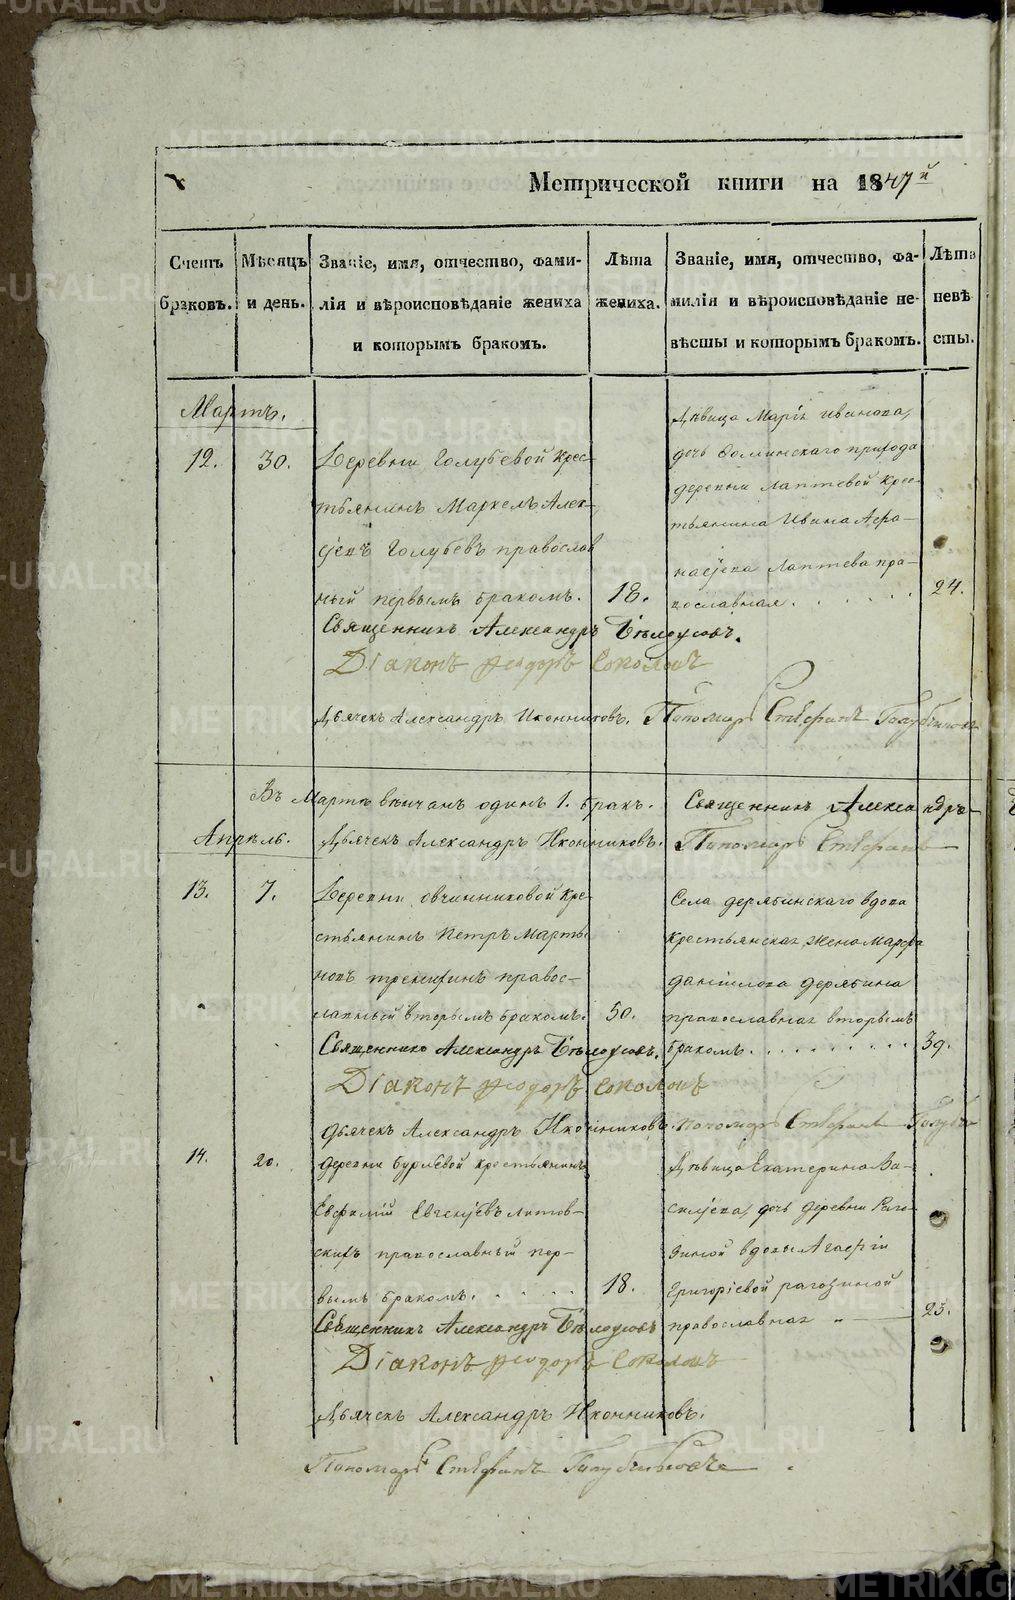 Метрической книги на 1847й
Счетъ браковъ.
Мѣсяцъ и день.
Званіе, имя, отчество, фами-
лія и вѣроисповѣданіе жениха
и которымъ бракомъ.
Лѣта
жениха.
Званіе, имя, отчество, фа-
милія и вѣроисповѣданіе не-
вѣсты и которымъ бракомъ.
Лѣта
невѣ
сты.
Мартъ.
12.
30.
Деревни Голубевой крес-
тьянинъ Маркелъ Алек-
сѣевъ Голубевъ православ
ный первымъ бракомъ.
18.
Дѣвица Марія Иванова,
дочь Фоминскаго прихода
деревни Лаптевой крес-
тьянина Ивана Афа-
насьева Лаптева пра-
вославная.
24.
Священникъ Александръ Бѣлоусовъ.
Діаконъ Ѳеодоръ Соколовъ
Дьячекъ Александръ Иконниковъ. Пономарь Стефанъ
Въ Мартѣ вѣнчанъ одинъ 1. бракъ. Священникъ Александръ
Апрѣль.
Дьячекъ Александръ Иконниковъ. Пономарь Стефанъ
13.
7.
Деревни Овчинниковой кре-
стьянинъ Петръ Марты-
новъ православный вторымъ бракомъ.
50.
Села Дерябинскаго вдова
крестьянская жена Марфа
Даніилова Дерябина
православная вторымъ
бракомъ.
39.
Священникъ Александръ Бѣлоусовъ.
Діаконъ Ѳеодоръ Соколовъ
Дьячекъ Александръ Иконниковъ. Пономарь Стефанъ
14.
20.
Деревни Бурлевой крестьянинъ
Евфимій Евгеньевъ Литов-
скихъ православный пер-
вымъ бракомъ.
18.
Дѣвица Екатерина Ва-
сильева, дочь деревни Раго-
зиной вдовы Агафіи
Григоріевой Рагозиной
православная
25.
Священникъ Александръ Бѣлоусовъ
Діаконъ Ѳеодоръ Соколовъ
Дьячекъ Александръ Иконниковъ.
Пономарь Стефанъ
METRIKI.GASO-URAL.RU